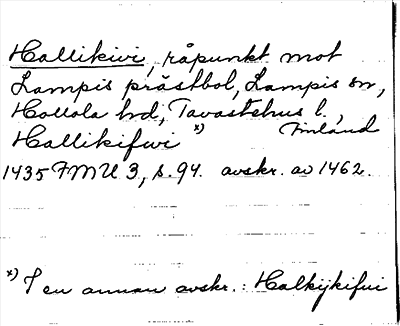 Hallikivi, råpunkt mot
Lampis prästbol, Lampis sn,
Hollola hd, Tavastehus l.,
Hallikifwi x) Finland
1435 FMU 3, s. 94. avskr. av 1462.
x) I en annan avskr.: Halkijkifui